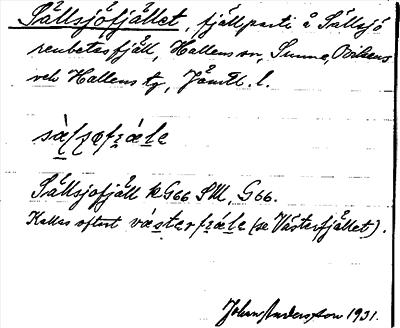 Sällsjöfjället, fjällparti å Sällsjö
renbetesfjäll, Hallens sn, Sunne, Ovikens
och Hallens tg, Jämtl. l.
Sällsjöfjäll kG66 SM, G66.
Kallas oftast västerfjäle (se Västerfjället).
John Anderson 1931.